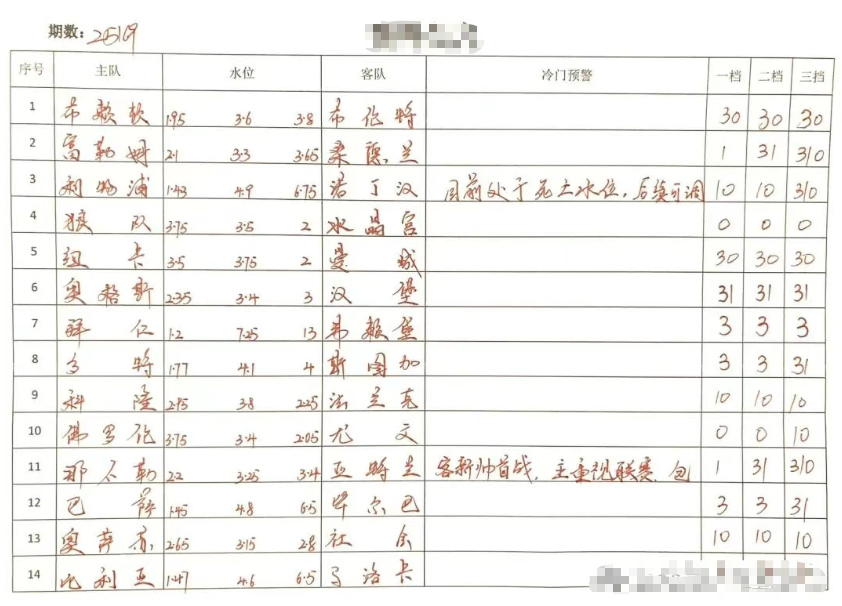 期数: 25169
序号 主队 水位 客队 冷门预警 一档 二档 三挡
1 布赖顿 1.95 3.6 3.8 布伦特 30 30 30
2 富勒姆 2.1 3.3 3.65 桑德兰 1 31 310
3 利物浦 1.43 4.9 6.75 诺丁汉 目前处于死亡水位,后续可调 10 10 310
4 狼队 3.75 3.5 2 水晶宫 0 0 0
5 纽卡 3.5 3.75 2 曼城 30 30 30
6 奥格斯 2.35 3.4 3 汉堡 31 31 31
7 拜仁 1.2 7.25 13 弗赖堡 3 3 3
8 多特 1.77 4.1 4 斯图加 3 3 31
9 科隆 2.95 3.8 2.25 法兰克 10 10 10
10 佛罗伦 3.75 3.4 2.05 尤文 0 0 10
11 那不勒 2.2 3.25 3.4 亚特兰 客新帅首战,主重视联赛 包 1 31 310
12 巴萨 1.45 4.8 6.5 毕尔巴 3 3 31
13 奥萨苏 2.65 3.15 2.8 社会 10 10 10
14 比利亚 1.47 4.6 6.5 马洛卡